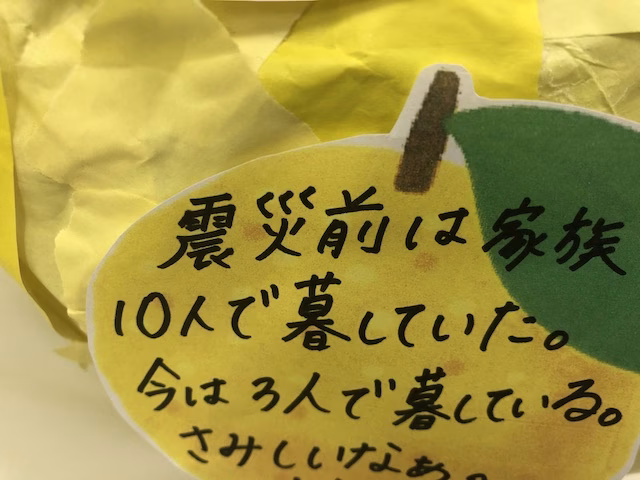 震災前は家族
10人で暮していた。
今は3人で暮している。
さみしいなぁ。